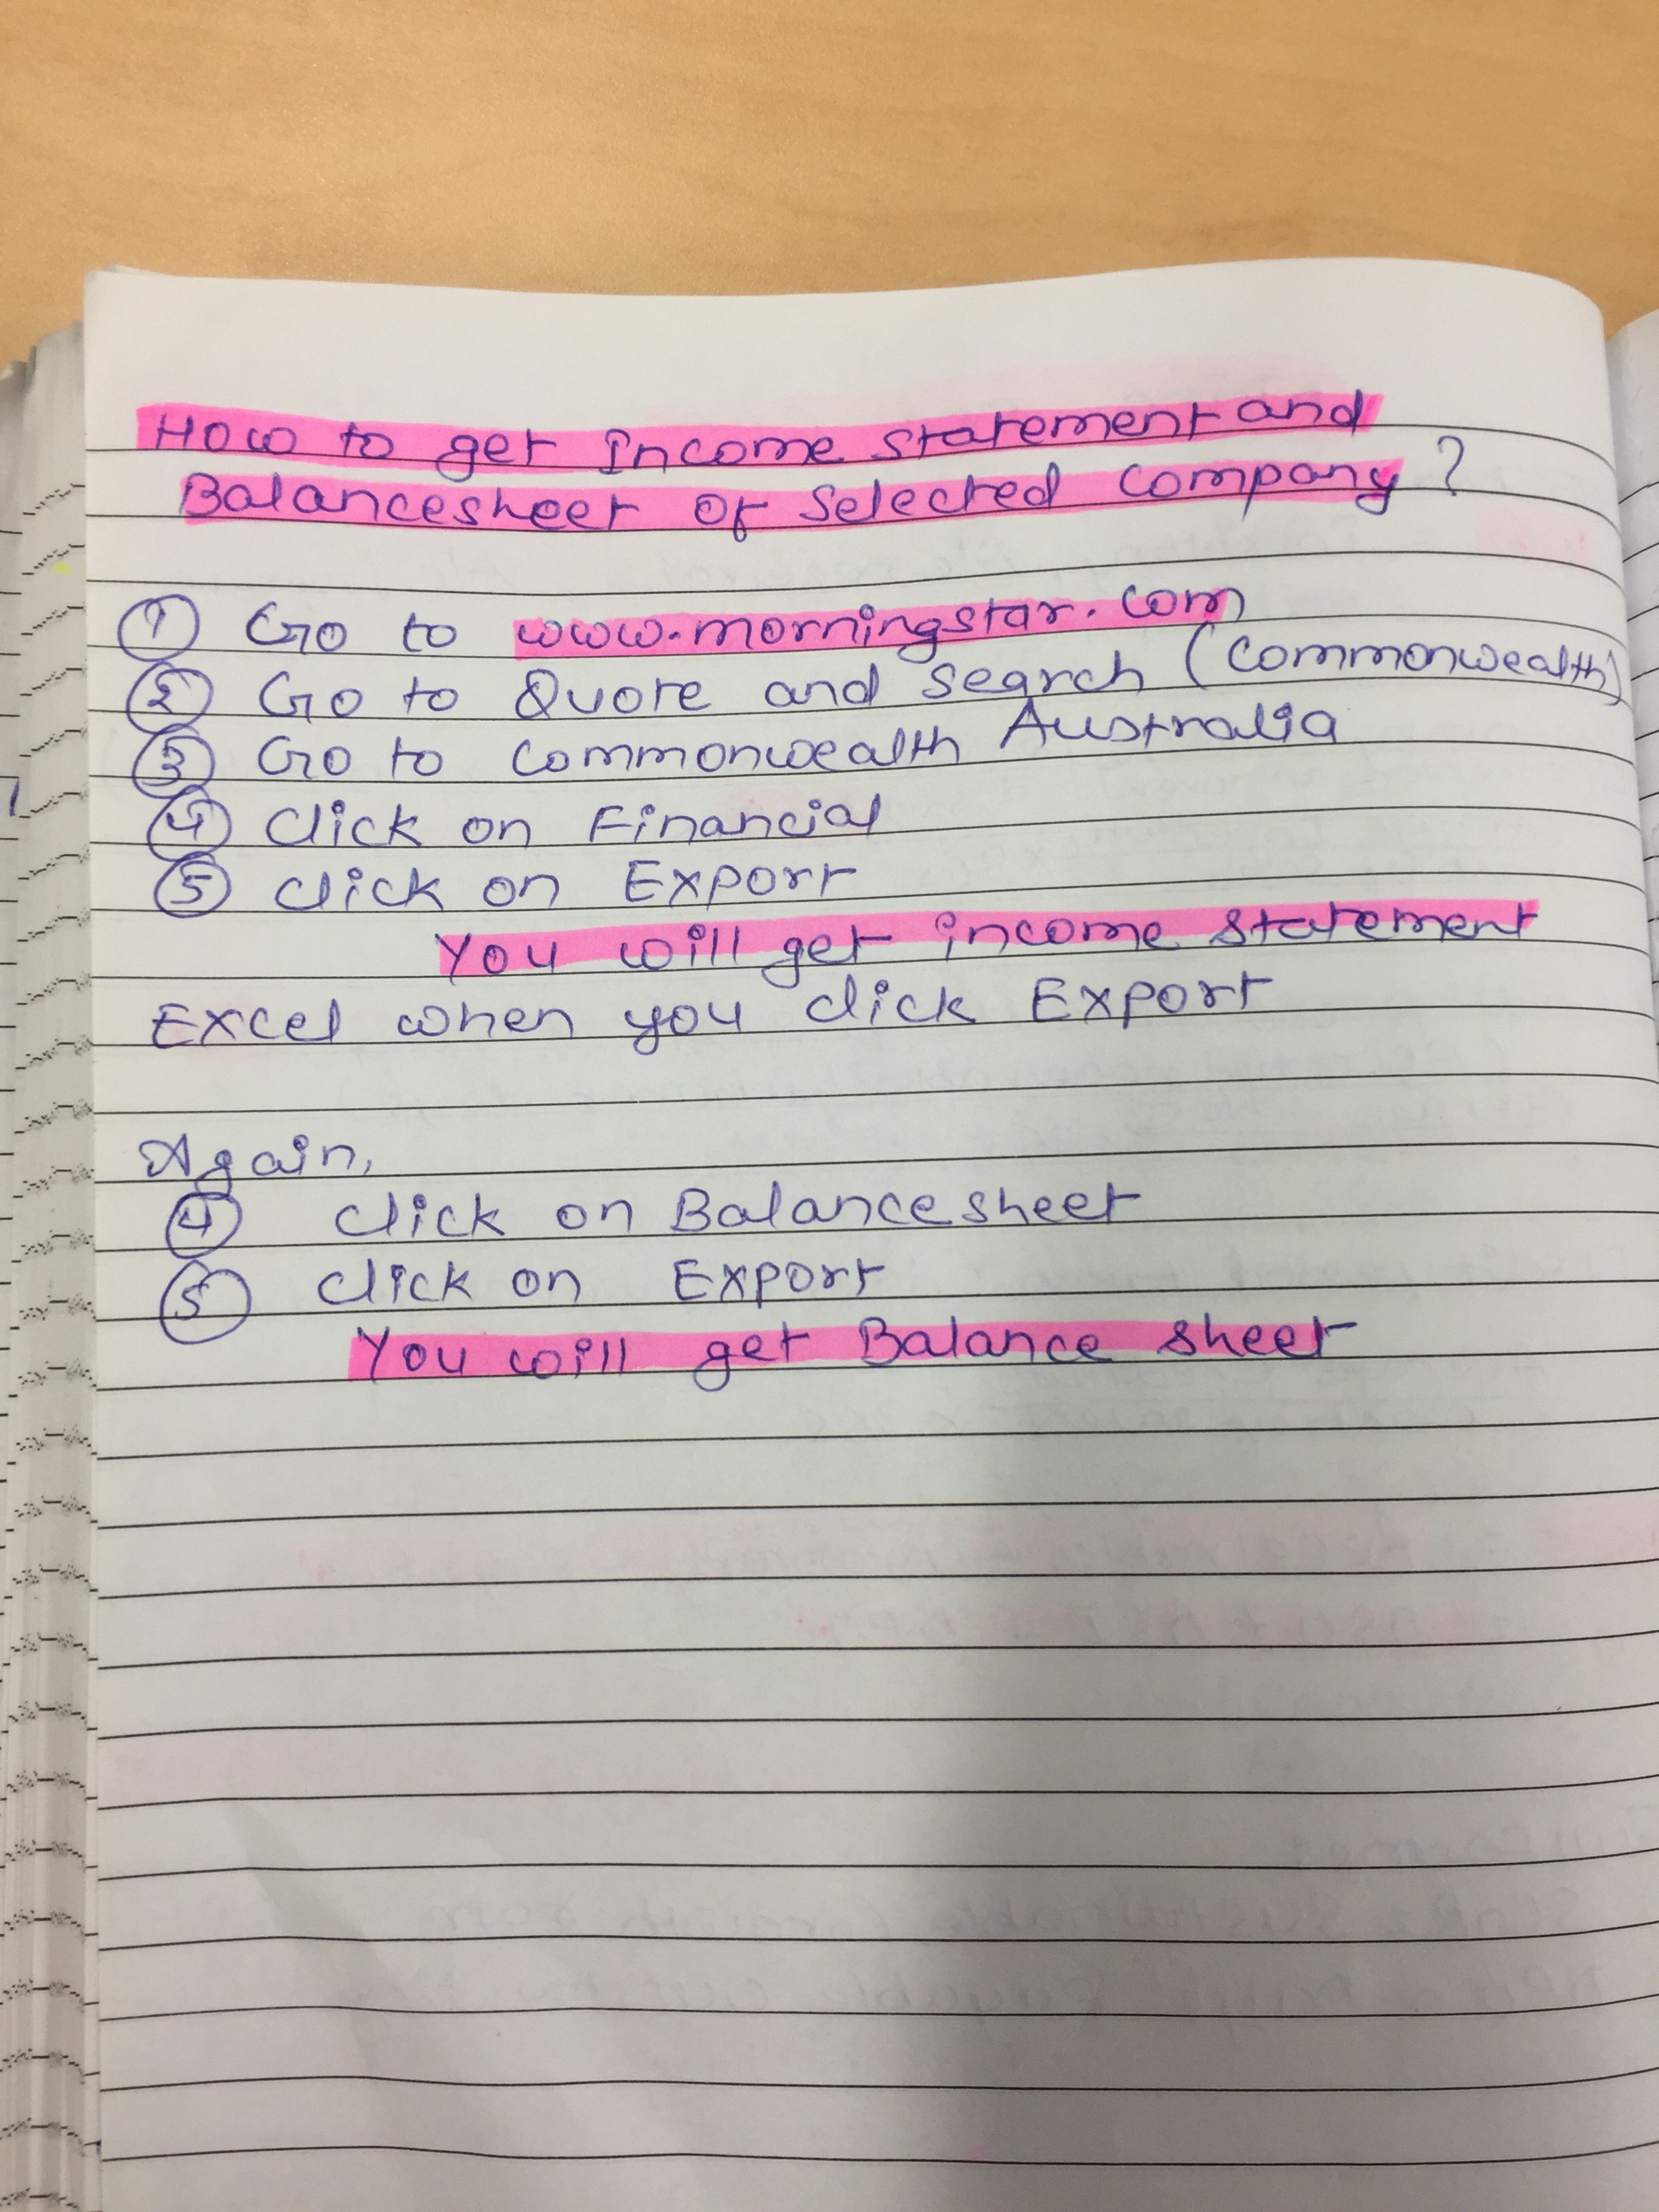 How to get Income statement and
Balancesheet of Selected company ?
① Go to www.morningstar.com
② Go to Quote and search (commonwealth)
③ Go to commonwealth Australia
④ Click on Financial
⑤ click on Export
You will get income statement
Excel when you click Export
Again,
④ click on Balancesheet
⑤ click on Export
You will get Balance sheet